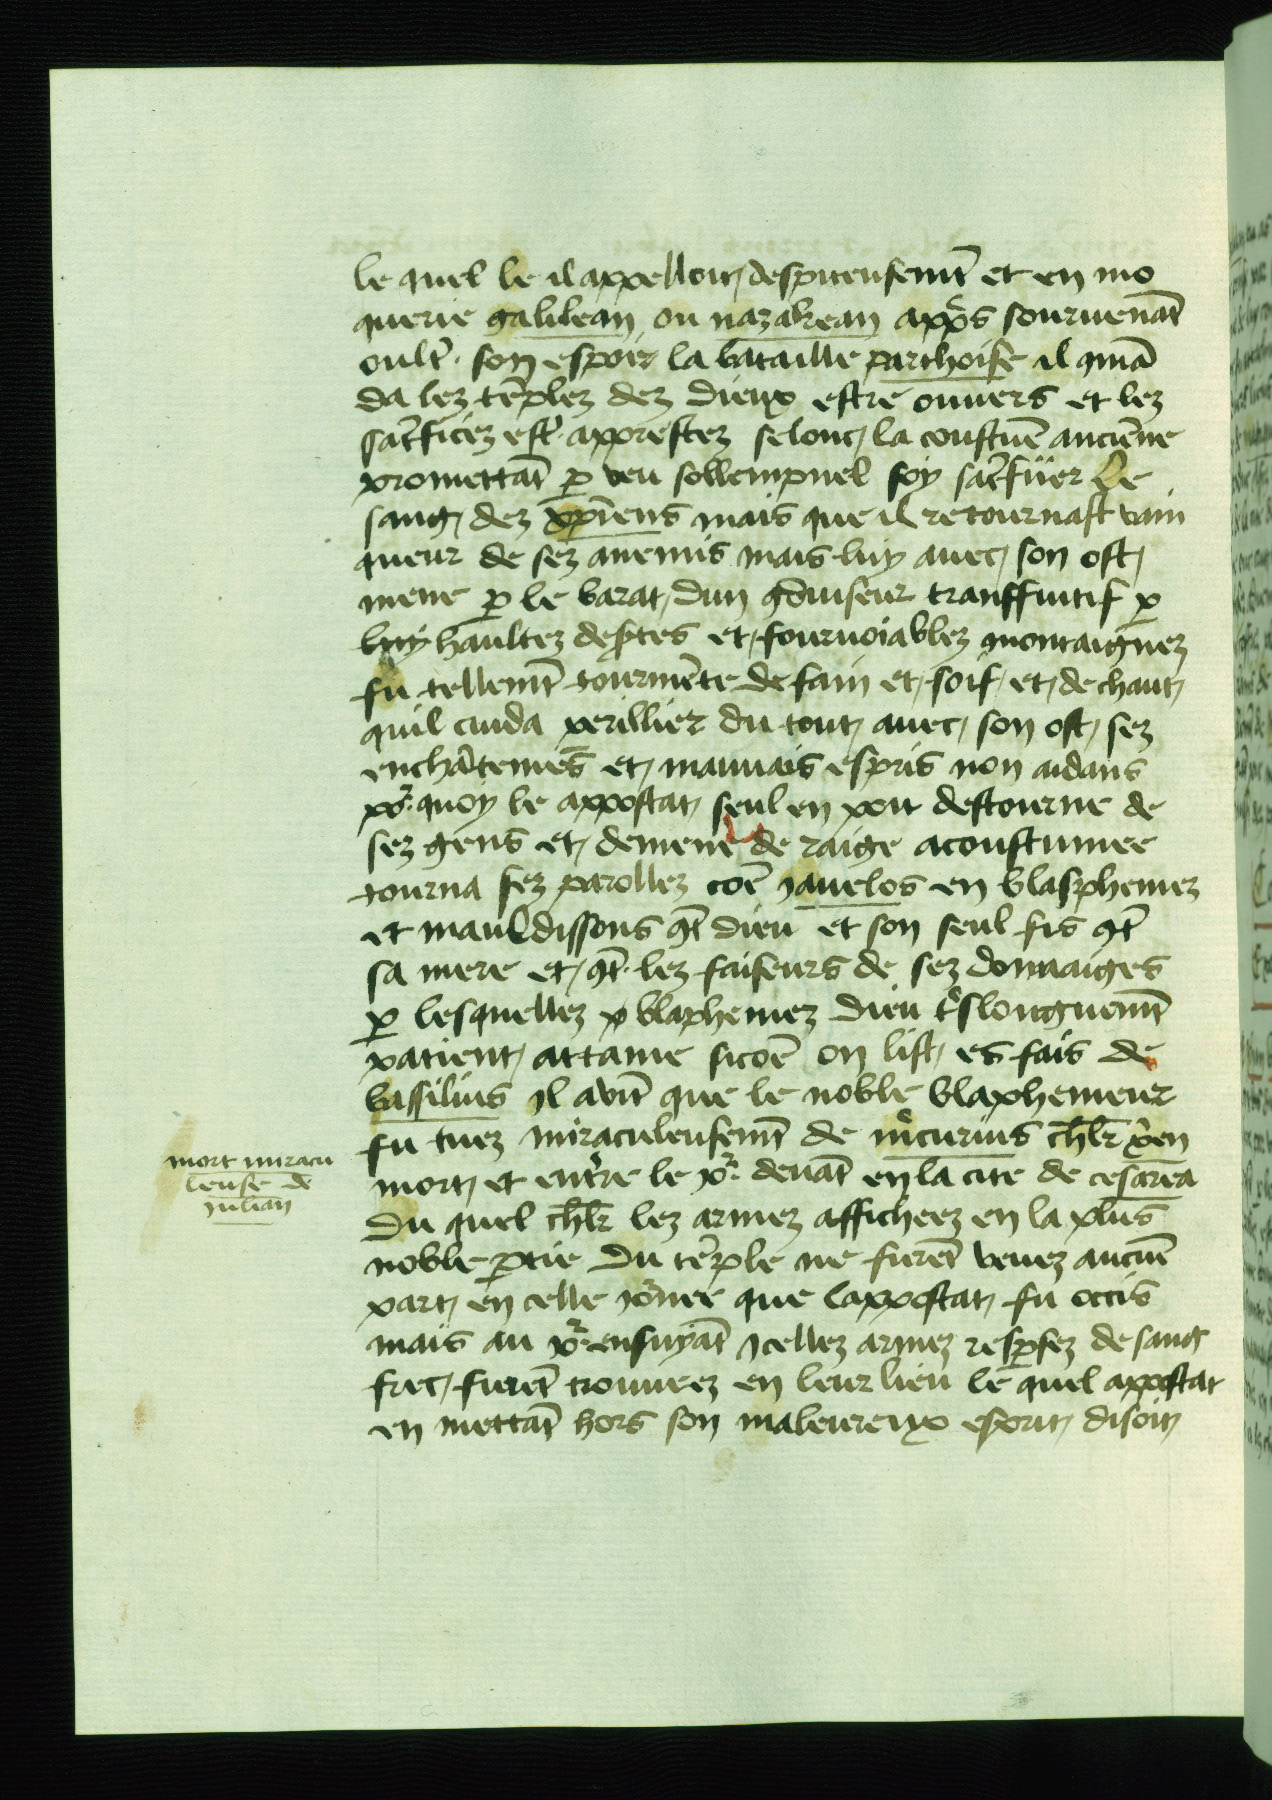 le quel le il appelloit despiteusemēt et en mo
querie galilean ou nazarean appͬs sourvenāt
oultᵉ son espoir la bataille parthoise il ɔmā
da lez tēplez dez dieux estre ouvers et lez
sacͬficez estᵉ apprestez selonc la coustūe anciēne
promettāt ꝑ veu sollempnel soy sacͬfiier le
sang dez xp̄iens mais que il retournast vain
queur de sez anemis mais luy avec son ost
mene ꝑ le barat dun ɔduiseur transfuitif ꝑ
luy haultez desͬtes et fourvoiablez montaignez
fu tellemēt tourmēte de fain et soif et de chaut
quil cuida perillier du tout avec son ost sez
enchātemēs et mauvais espris non aidans
poͬ quoy le appostat seul en poit destourne de
sez gens et demene de raige acoustumee
tourna sez parollez cōe javelos en blasphemez
et mauldissons ɔt̄ dieu et son seul fis ɔt̄
sa mere et ɔt̄ lez faiseurs de sez dommaiges
ꝑ lesquellez blaphemez dieu tͬslonguemēt
patient attaine sicōe on list es fais de
bassilius il avīt que le noble blaphemeur
fu tuez miraculeusemēt de mͬcurius ch̄lr xͬen
mort et entͬre le joͬ devāt en la cite de cesarea
du quel ch̄lr lez armez afficheez en la plus
noble ꝑtie du tēple ne furēt veuez aucūe
part en celle joͬnee que lappostat fu occis
mais au joͬ ensuyāt jcellez armez resꝑsez de sang
frec furēt trouveez en leur lieu le quel appostat
en mettāt hors son maleureux esprit disoit
mort miracu
leuse de
julian